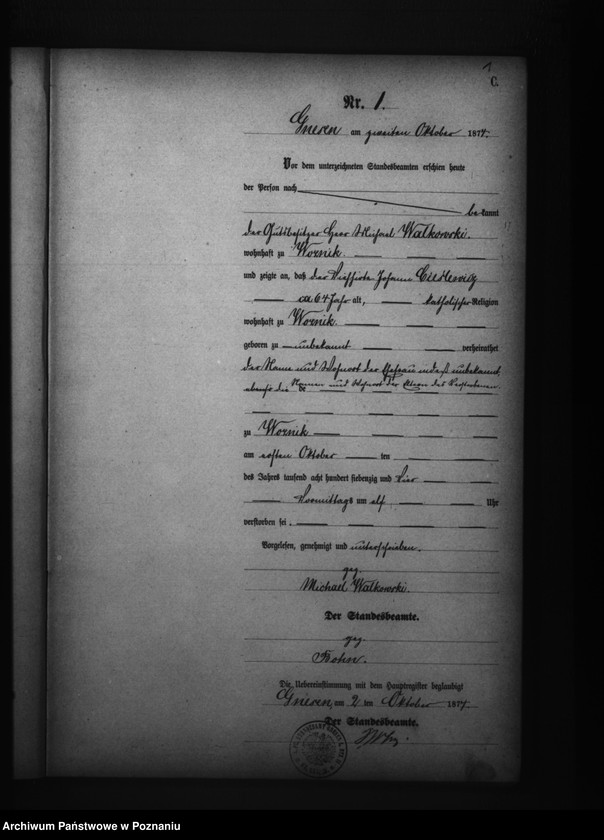 1
C.
Nr. 1.
Gneren am zweiten Oktober 1874.
Vor dem unterzeichneten Standesbeamten erschien heute
der Person nach
be kannt
der Gutsbesitzer Herr Michael Walkowski.
wohnhaft zu Woznik
und zeigte an, daß der Johann
ca 64 Jahr alt, katholischer Religion
wohnhaft zu Woznik
geboren zu unbekannt verheirathet
der Name und Wohnort der Ehefrau unbekannt,
ebenso die Namen und Wohnort der Eltern des Verstorbenen.
zu Woznik
am ersten Oktober ten
des Jahres tausend acht hundert siebenzig und vier
Vormittags um elf Uhr
verstorben sei.
Vorgelesen, genehmigt und unterschrieben.
gez.
Michael Walkowski.
Der Standesbeamte.
gez.
Die Uebereinstimmung mit dem Hauptregister beglaubigt
Gneren, am 2 ten Oktober 1874.
Der Standesbeamte.
Archiwum Państwowe w Poznaniu